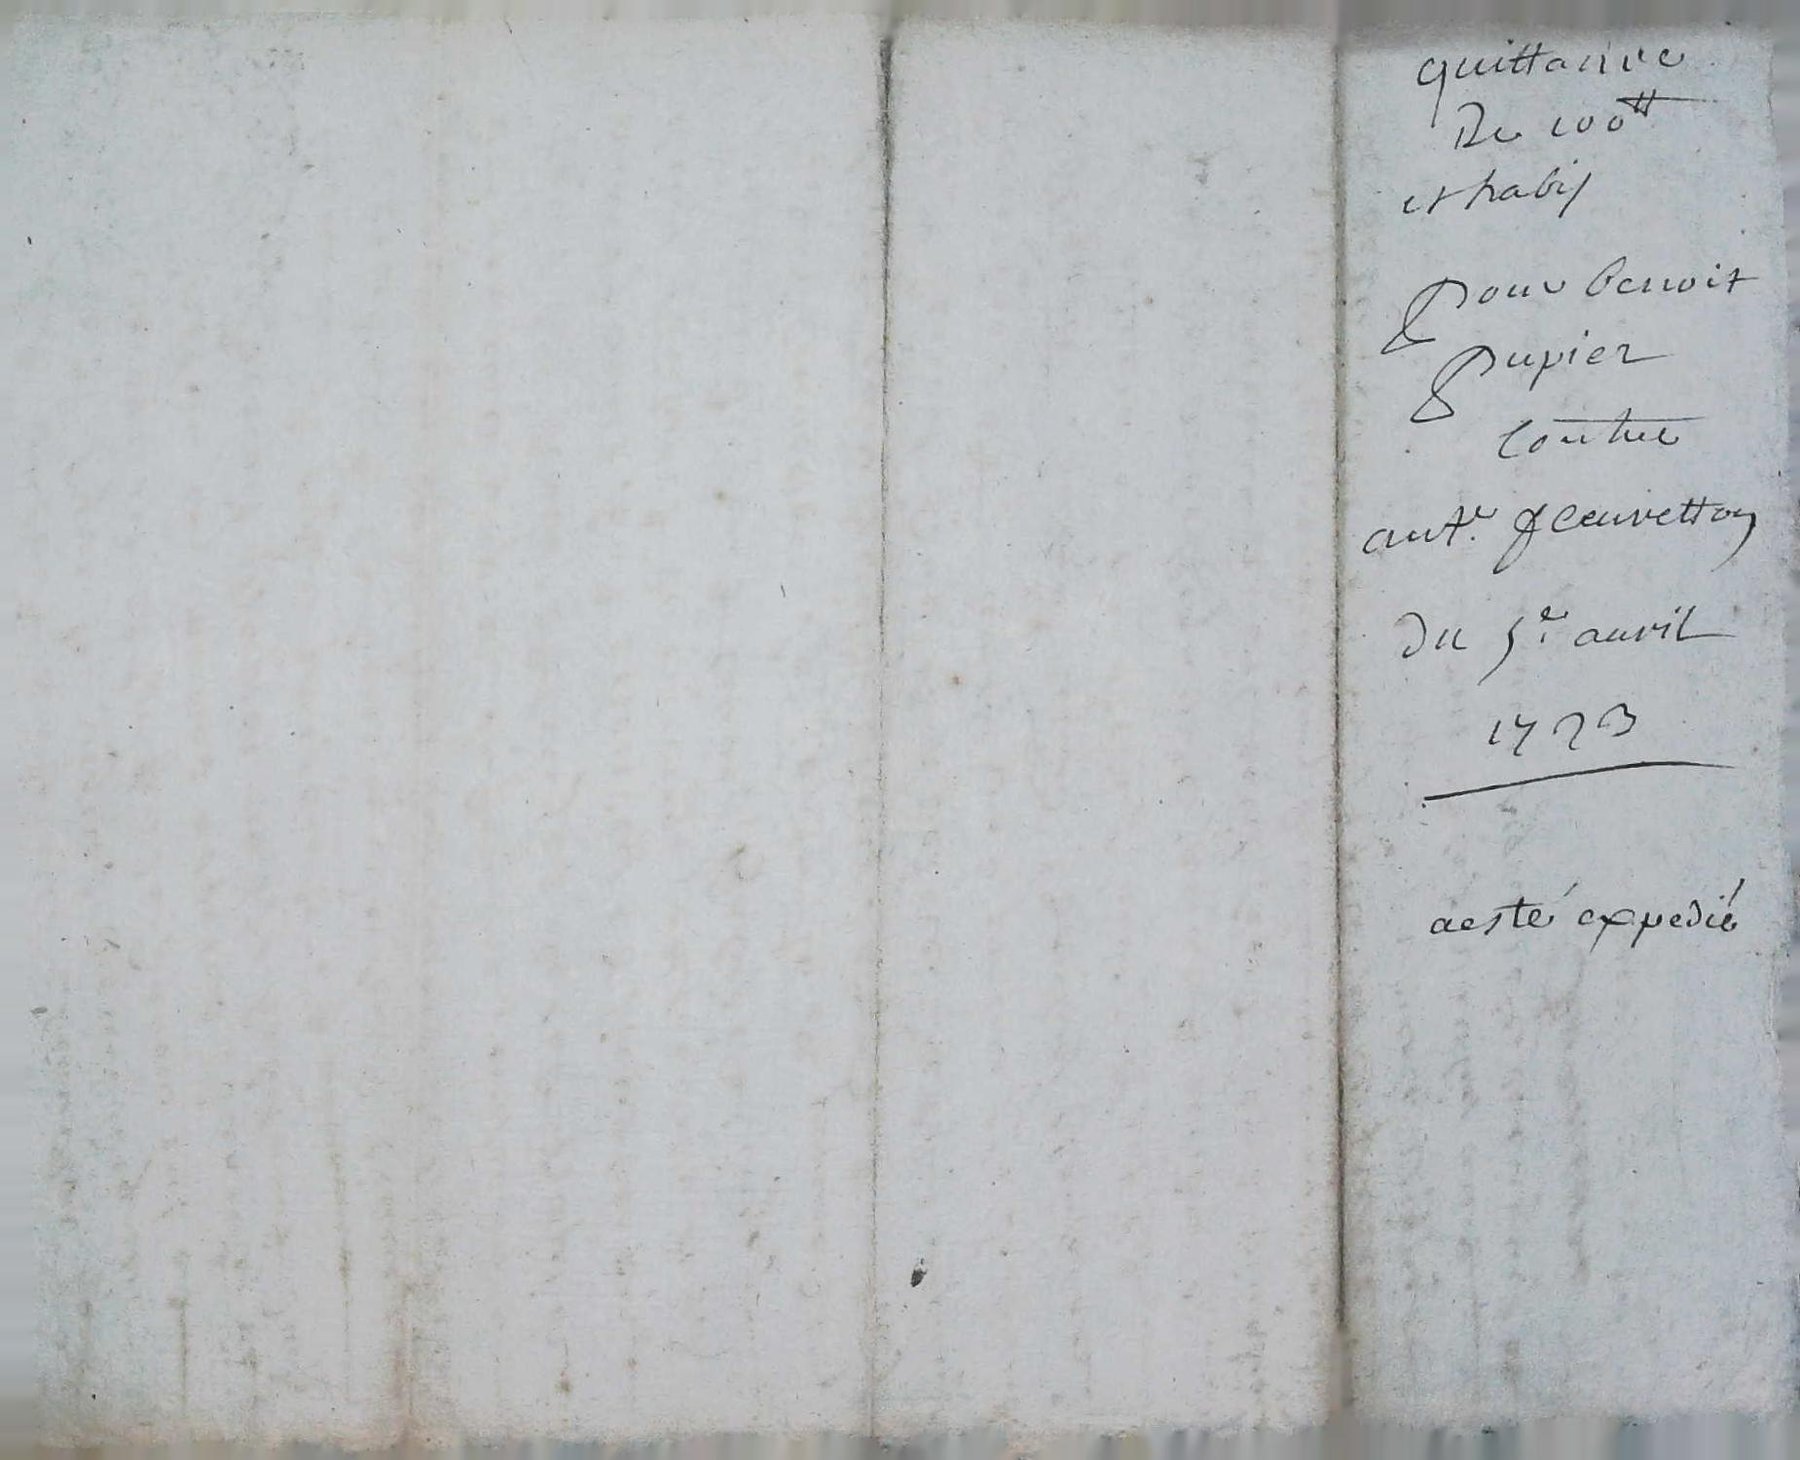 quittance
De 100ᵗᵗ
et habis
pour benoit
pupier
contre
antᵉ. fleuretton
du 5ᵉ. auril
1723
a esté expedié